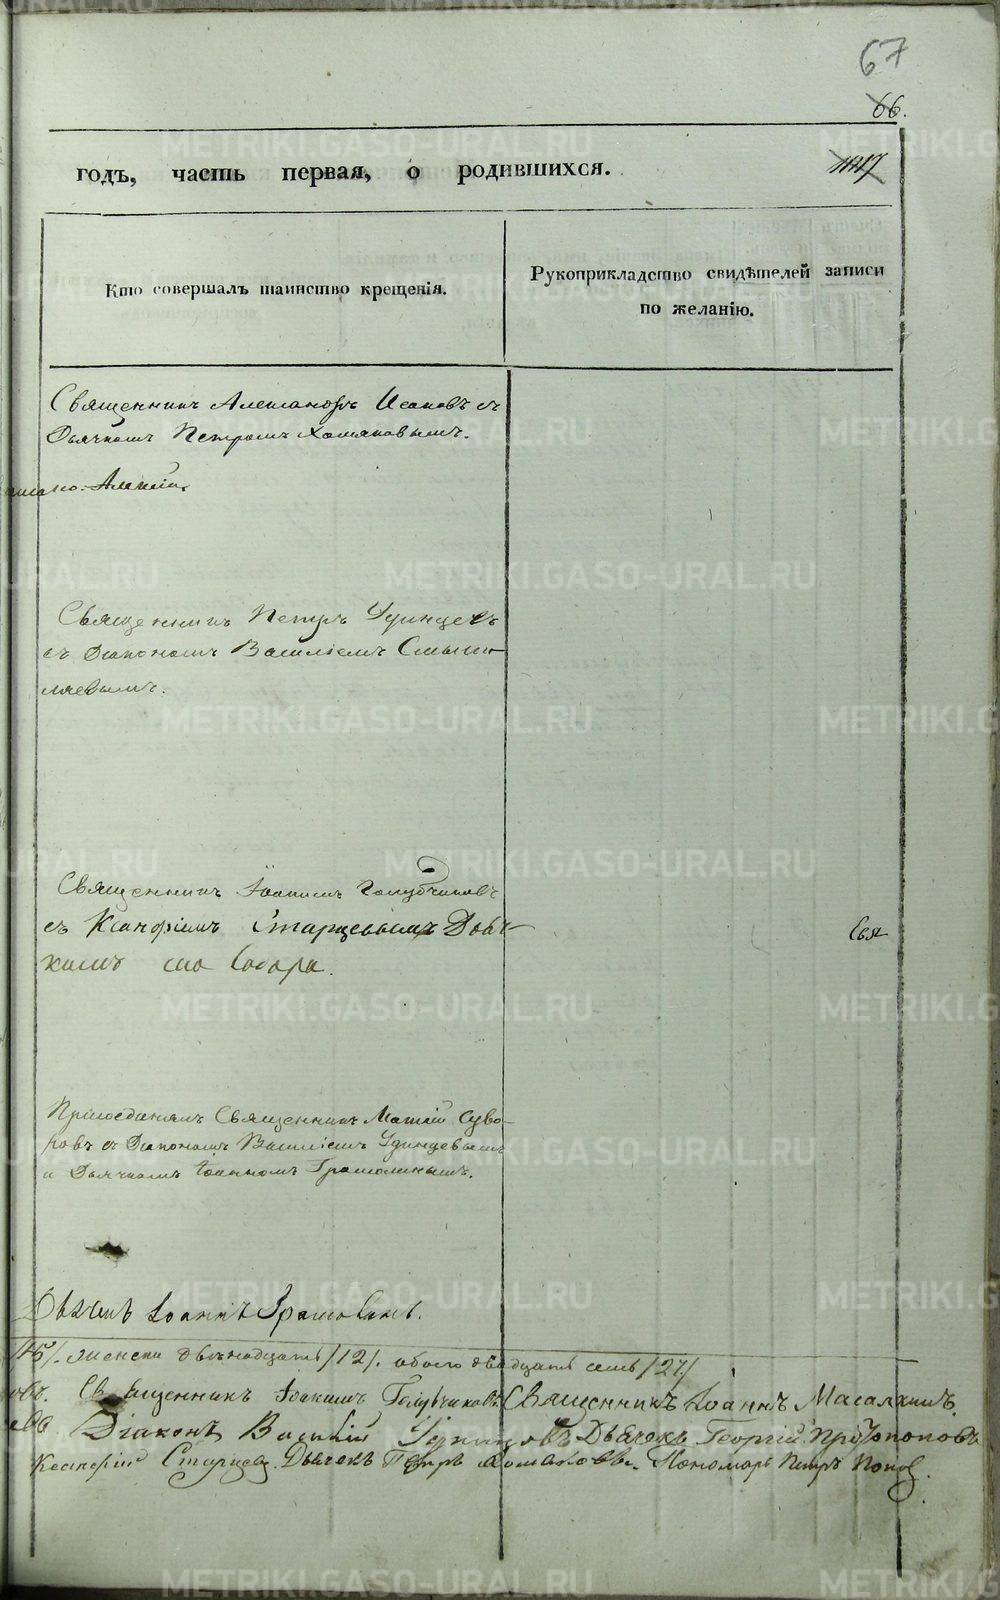 67
66.
годъ, часть первая, о родившихся.
Кто совершалъ таинство крещенія.
Рукоприкладство свидѣтелей записи
по желанію.
Священникъ Александръ Исаковъ съ
Дьячкомъ Петромъ Хомяковымъ.
Священникъ Петръ Удинцевъ
съ Діакономъ Василіемъ Смыш-
ляевымъ.
Священникъ Іоакимъ Голубчиковъ
съ Ксанфіемъ Старцевымъ Дьяч-
комъ Собора.
Свя
Присоединялъ Священникъ Матѳій Суво-
ровъ съ Діакономъ Василіемъ Удинцевымъ
и Дьячкомъ Іоанномъ Грамолинымъ.
Іоаннъ
/15/. женска двенадцать /12/. обоего двадцать семь /27/
Священникъ Іоакимъ Голубчиковъ Священникъ Іоаннъ
Діаконъ Василій Удинцовъ Дьячекъ Георгій Протопоповъ
Ксанфій Старцев. Дьячекъ Петръ Хомяковъ. Пономарь Петръ Попов.
METRIKI.GASO-URAL.RU